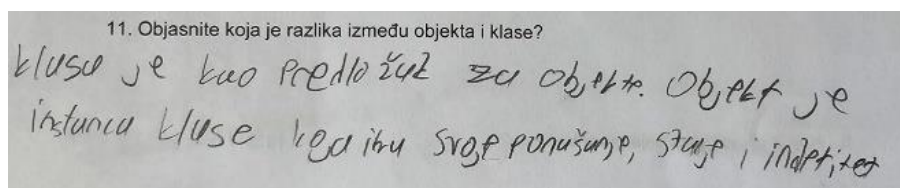 11. Objasnite koja je razlika između objekta i klase?
klasa je kao predložak za objekte. Objekt je
instanca klase koja ima svoje ponašanje, stanje i indetitet